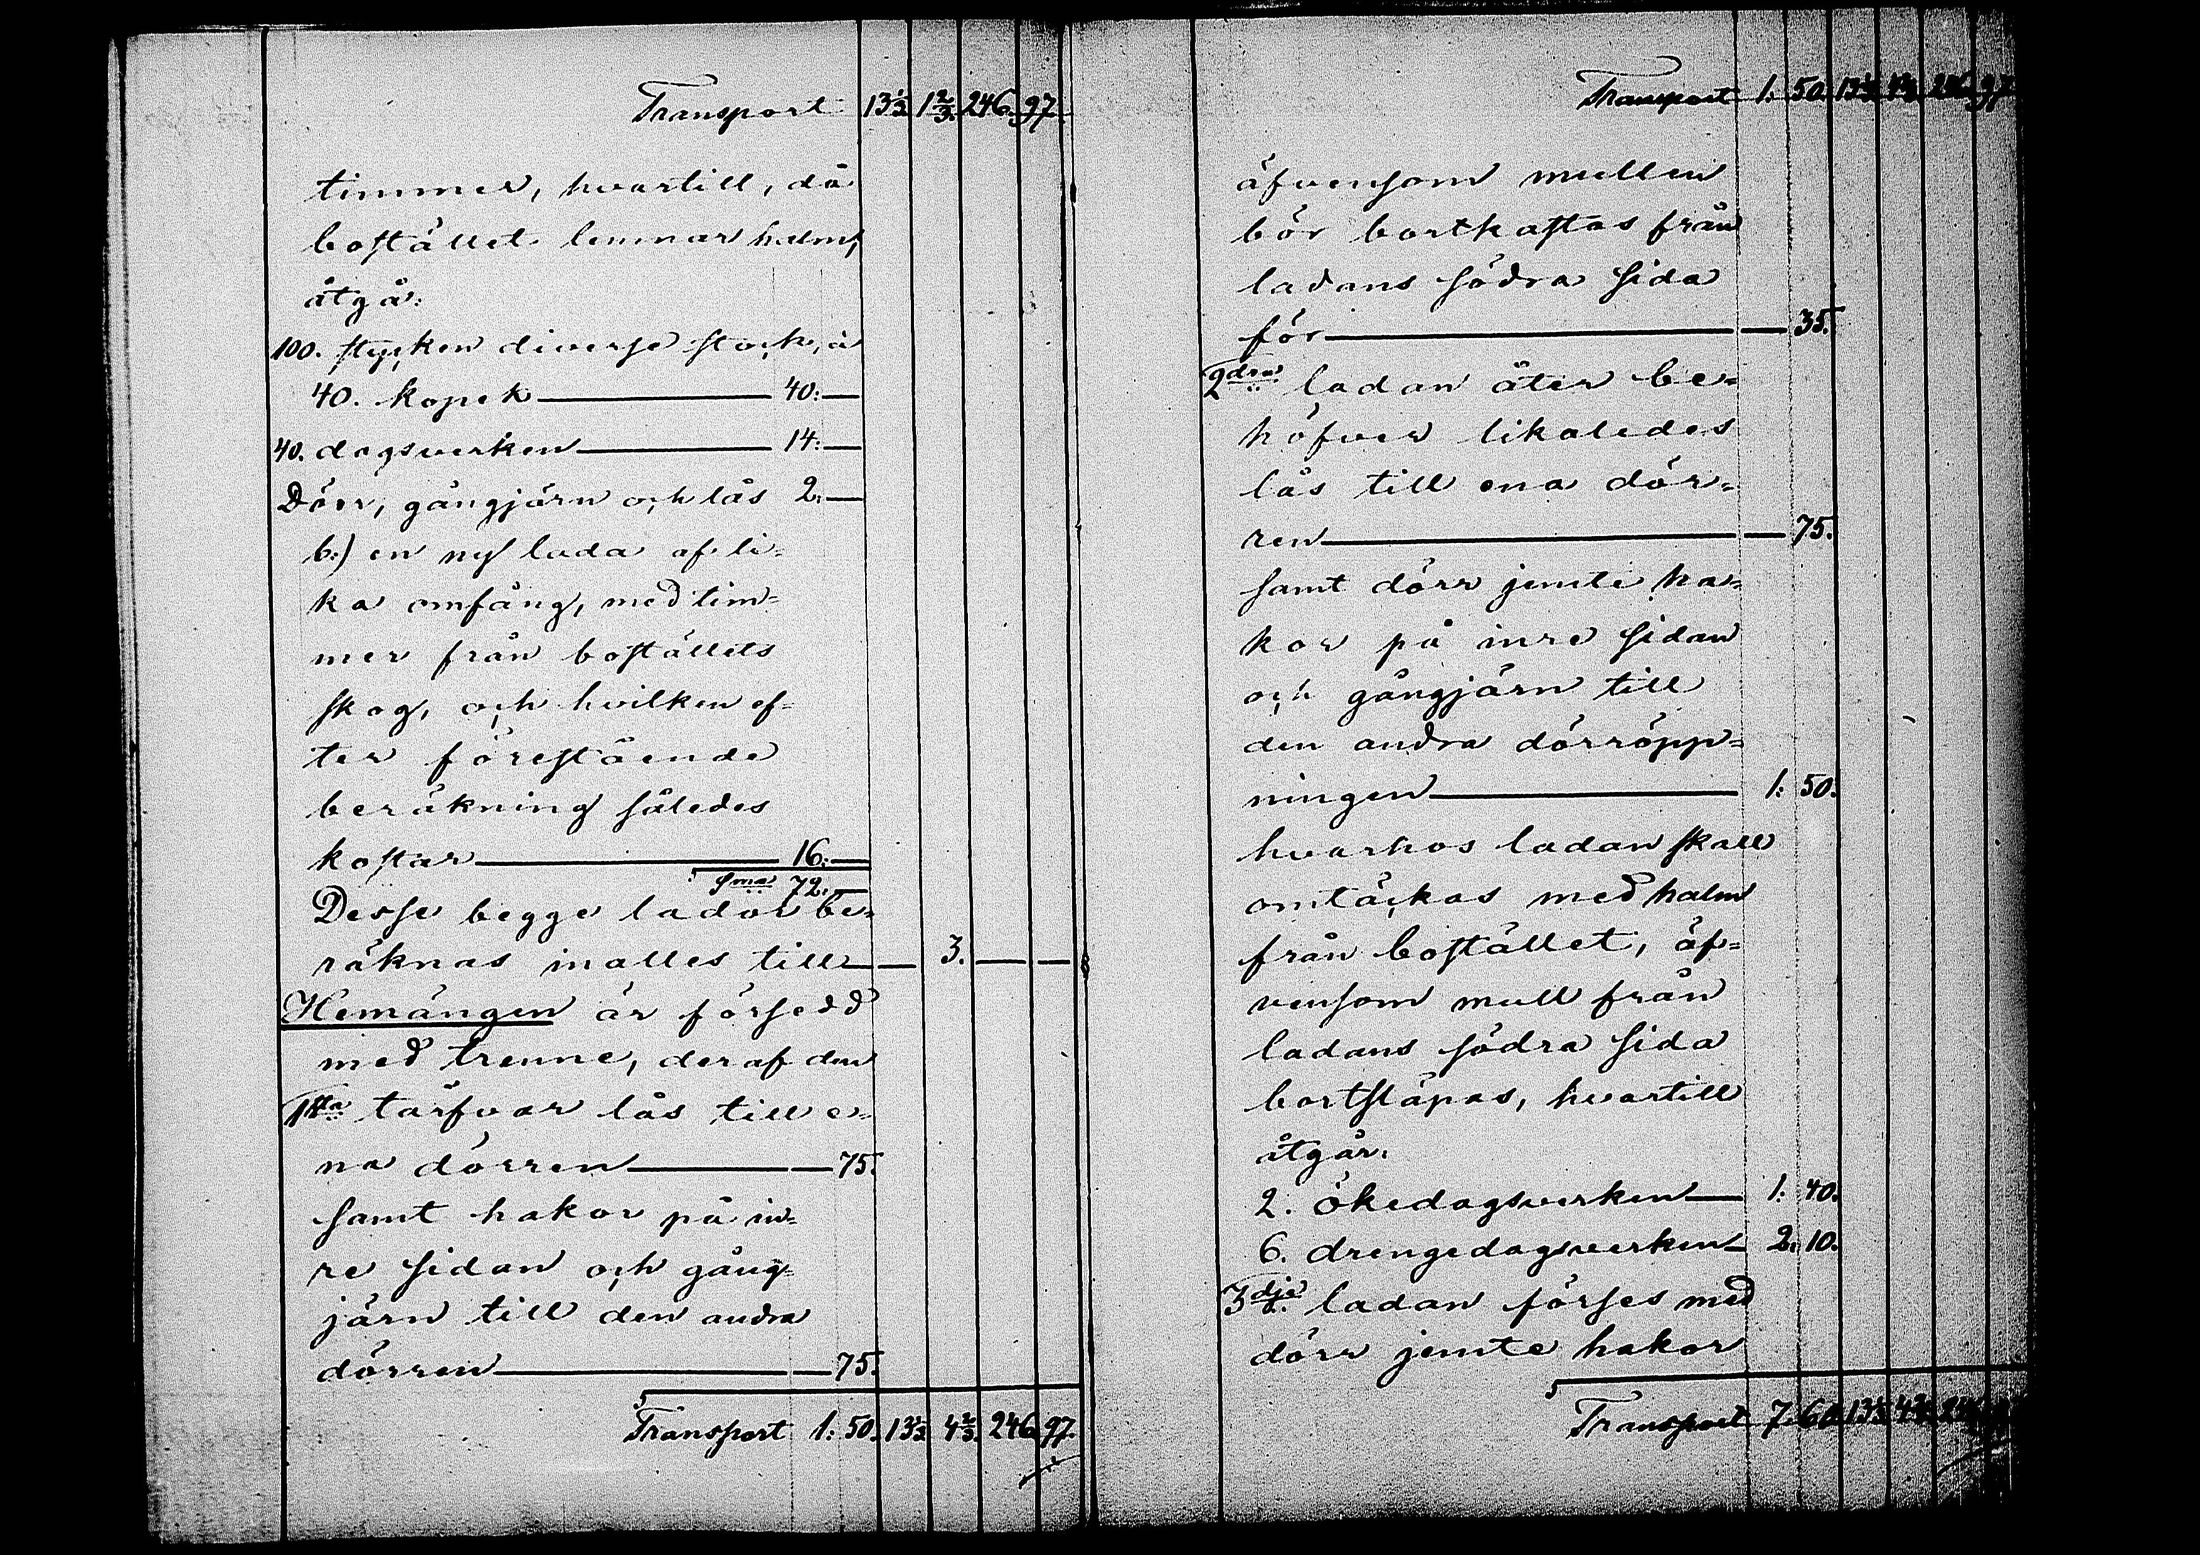 Transport 13½ 1⅔. 246. 97
timmer, hvartill, då
bostället lemnar halm,
åtgå:
100. stycken diverse stock, à
40. kopek — 40: —
40. dagsverken — 14: —
Dörr, gångjärn och lås 2. —
b.) en ny lada af li=
ka omfång, med tim=
mer från boställets
skog, och hvilken ef=
ter förestående
beräkning således
kostar — 16: —
Sma 72. —
Desse begge lador be=
räknas in alles till — 3. — —
Hemängen är försedd
med trenne, deraf den
1sta tarfvar lås till e=
na dörren — 75.
samt hakor på in=
re sidan och gång=
järn till den andra
dörren — 75.
Transport 1: 50. 13½ 4⅔. 246. 97.
Transport 1: 50. 13½ 4⅔ 246 97
äfvensom mullen
bör bortkastas från
ladans södra sida
för — 35.
2dra ladan åter be=
höfver likaledes
lås till ena dör=
ren — 75.
samt dörr jemte ha=
kor på inre sidan
och gångjärn till
den andra dörröpp=
ningen — 1: 50.
hvarhos ladan skall
omtäckas med halm
från bostället, äf=
vensom mull från
ladans södra sida
bortsläpas, hvartill
åtgår.
2. ökedagsverken — 1: 40.
6. drengedagsverken — 2. 10.
3dje ladan förses med
dörr jemte hakor
Transport 7. 60. 13½ 4⅔ 246